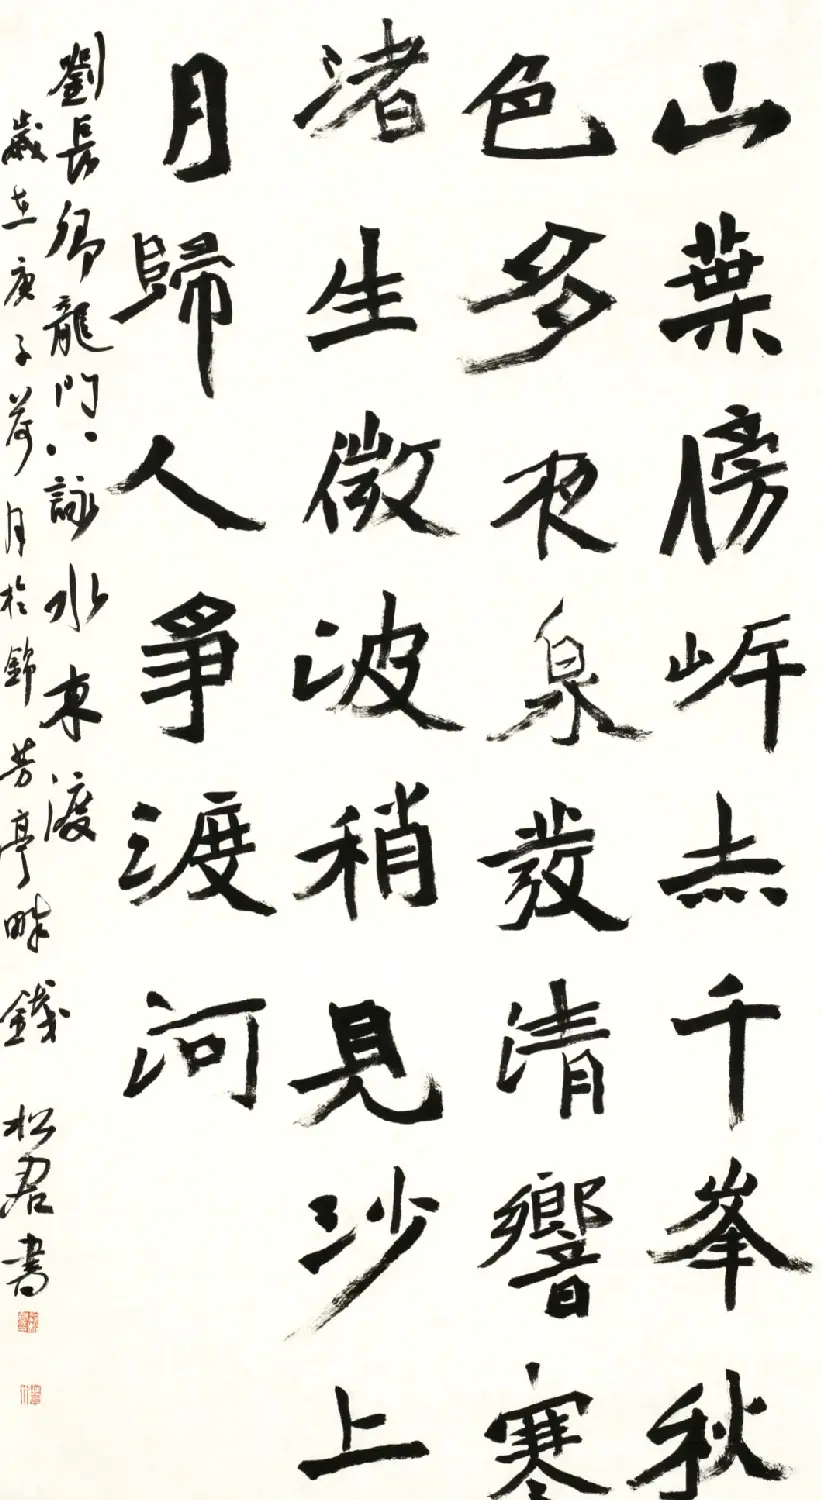 山葉傍崖赤千峯秋
色多夜泉發清響寒
渚生微波稍見沙上
月歸人爭渡河
劉長卿龍門八詠水東渡
歲在庚子荷月於錦芳亭畔錢松君書